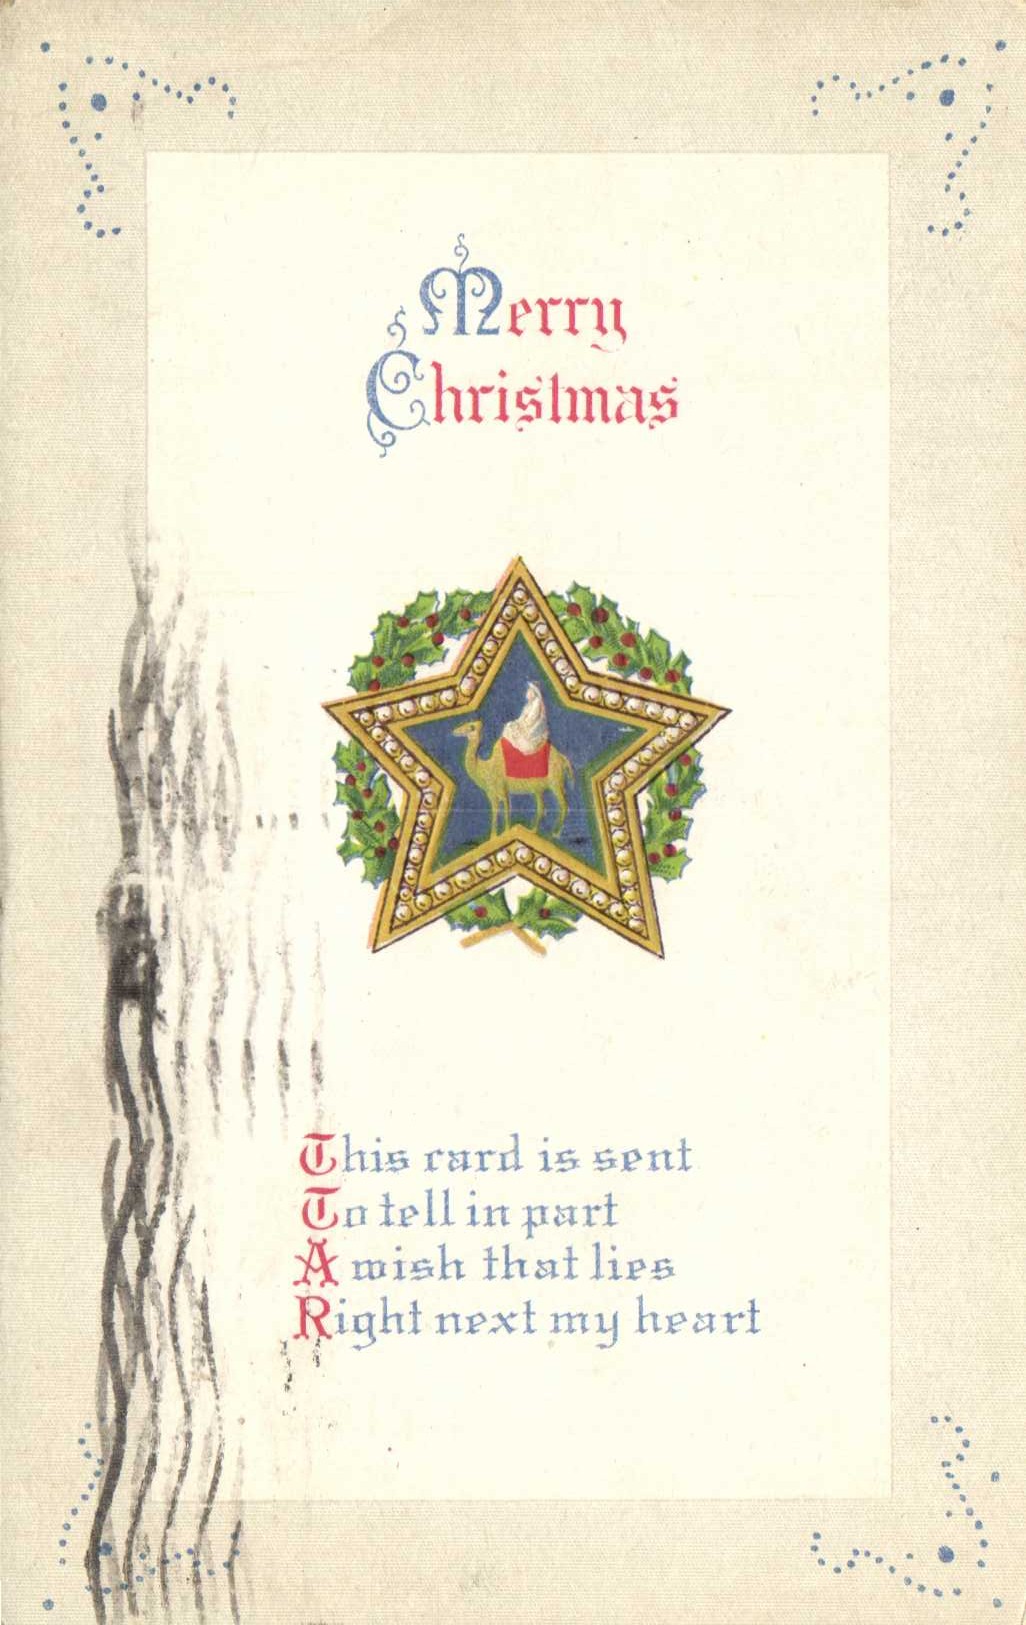 Merry
Christmas
This card is sent
To tell in part
A wish that lies
Right next my heart